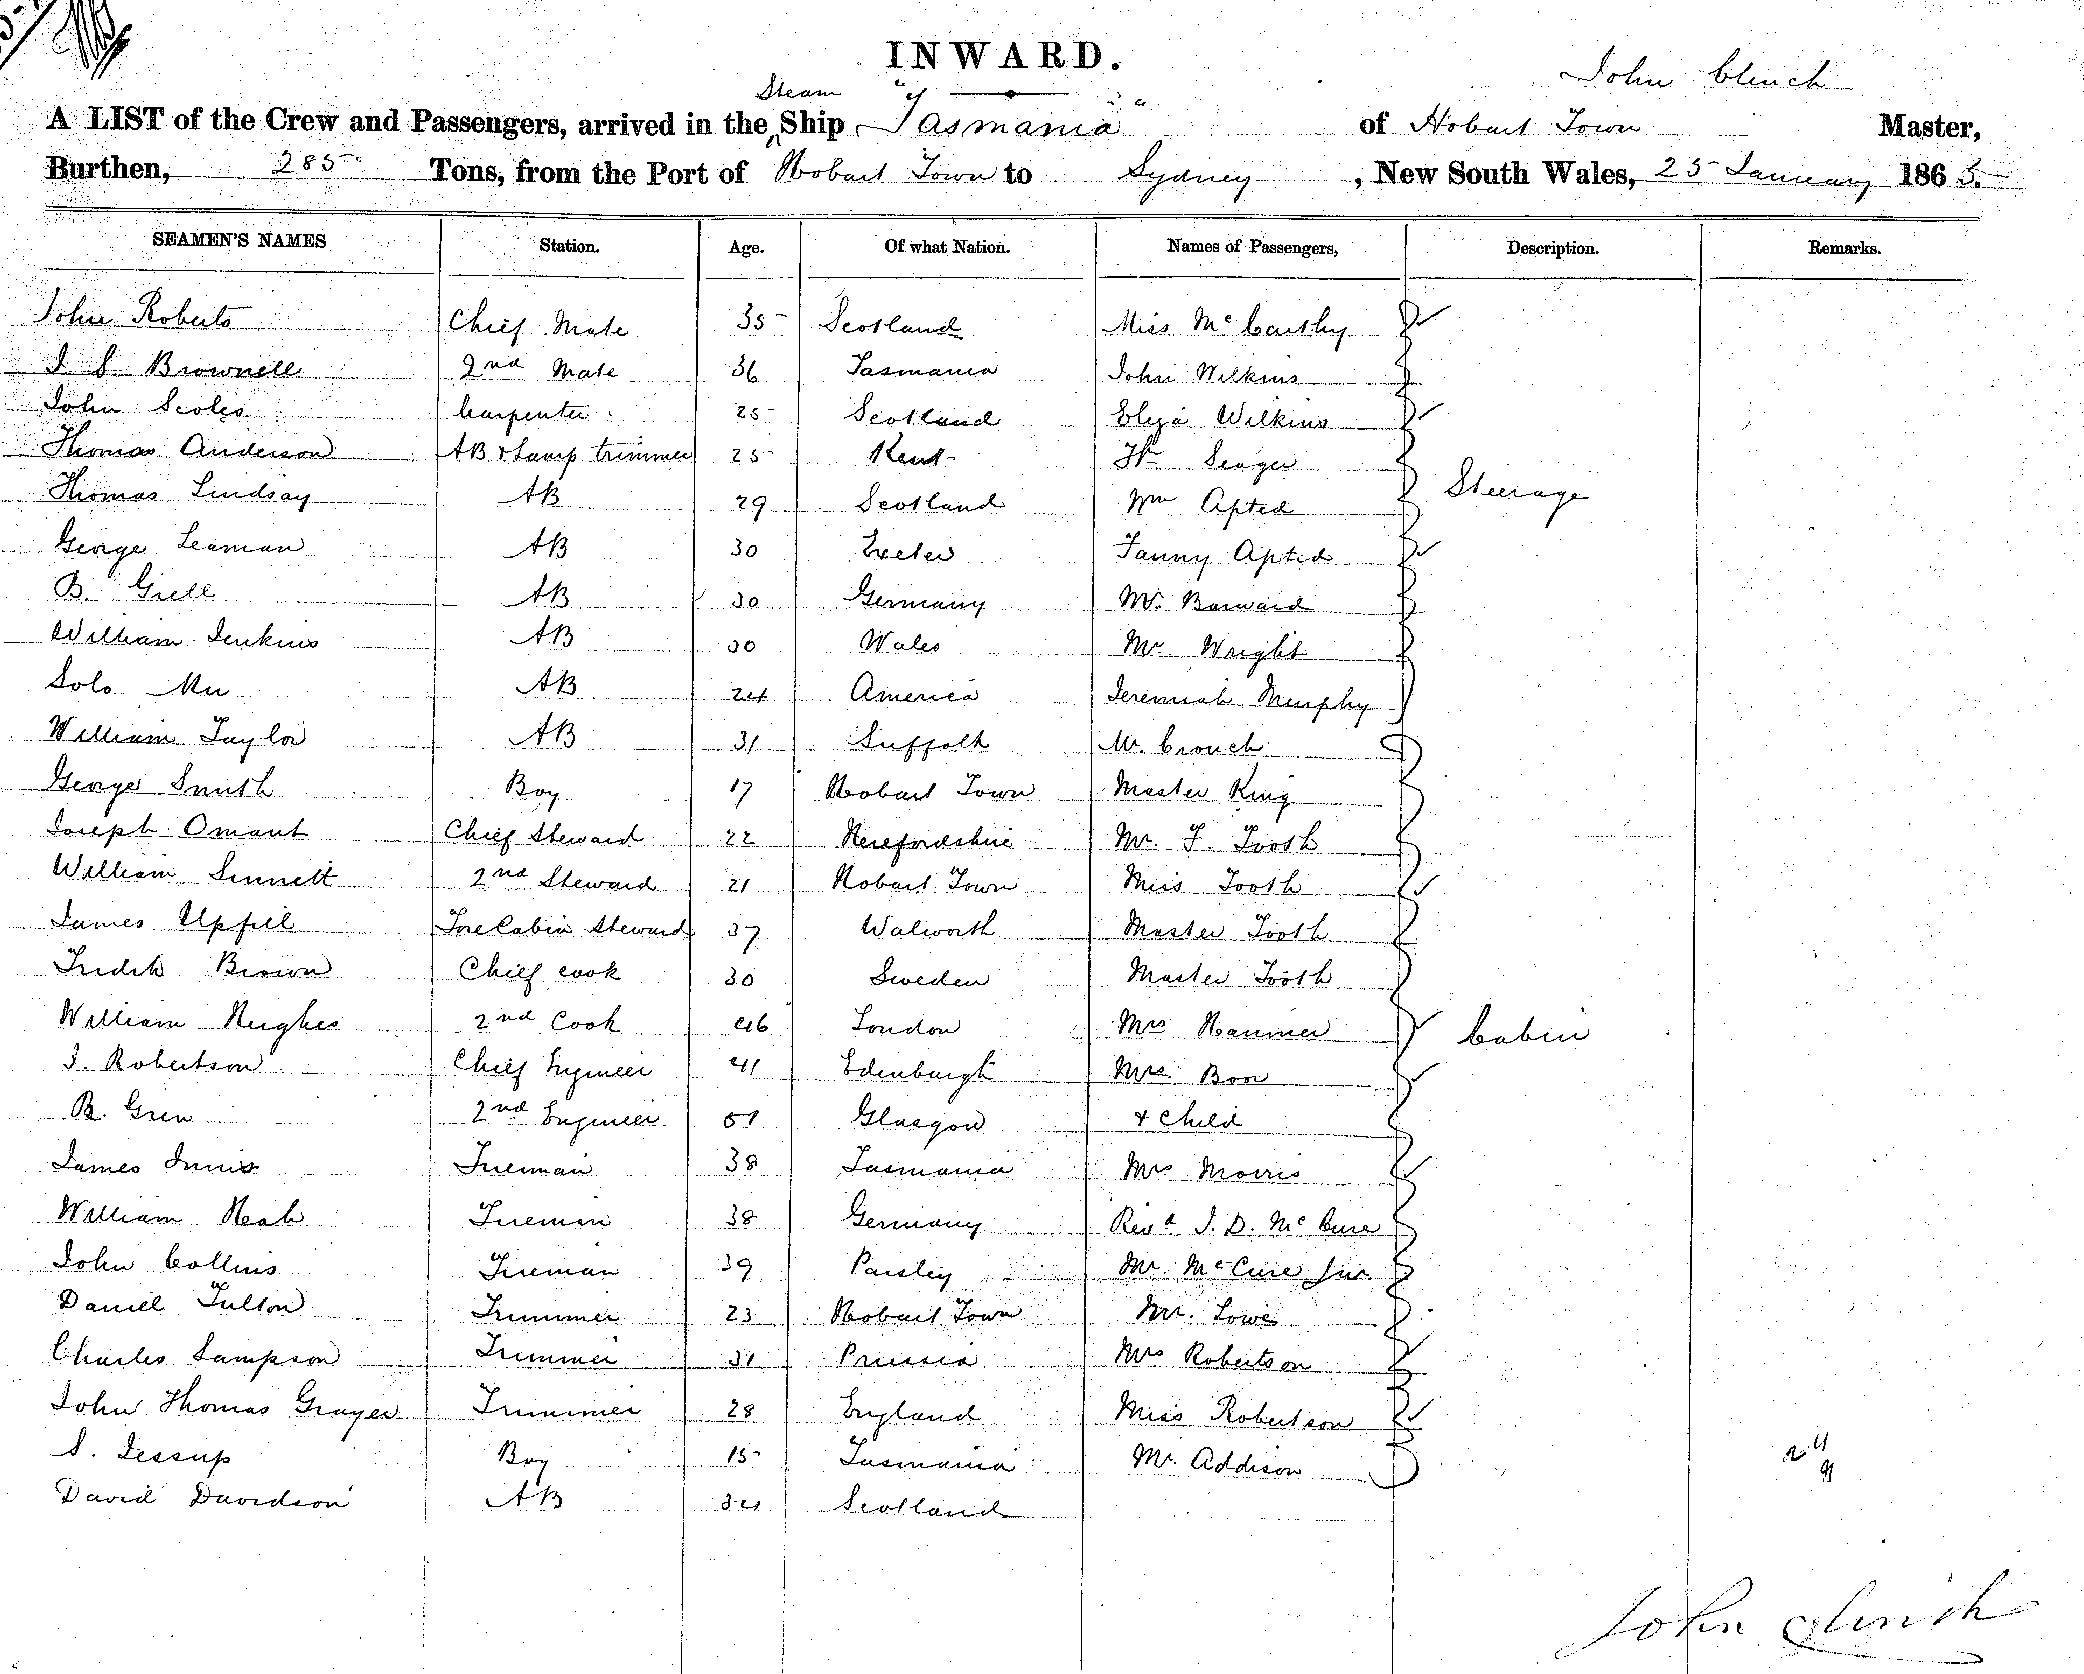 INWARD.
John Clinch
Steam
A LIST of the Crew and Passengers, arrived in the Ship "Tasmania" of Hobart Town Master,
Burthen, 285 Tons, from the Port of Hobart Town to Sydney, New South Wales, 25 January 1865.
SEAMEN'S NAMES Station. Age. Of what Nation. Names of Passengers, Description. Remarks.
John Roberts Chief Mate 35 Scotland Miss McCarthy
J S Brownell 2nd Mate 36 Tasmania John Wilkins
John Scoles Carpenter 25 Scotland Eliza Wilkins
Thomas Anderson AB & Lamp trimmer 25 Kent Seager
Thomas Lindsay AB 29 Scotland Wm Apted Steerage
George Leaman AB 30 Exeter Fanny Apted
B. Grell AB 30 Germany Mr. Barward
William Jenkins AB 30 Wales Mr Wright
Solo AB 24 America Jeremiah Murphy
William Taylor AB 31 Suffolk Mr. Crouch
George Smith Boy 17 Hobart Town Master King
Joseph Omant Chief Steward 22 Herefordshire Mr. F. Tooth
William Sinnett 2nd Steward 21 Hobart Town Miss Tooth
James Upfill Fore Cabin Steward 37 Walworth Master Tooth
Fredk Brown Chief cook 30 Sweden Master Tooth
William Hughes 2nd Cook 46 London Mrs Hanmer Cabin
J. Robertson Chief Engineer 41 Edenburgh Mrs Bon
B. Gren 2nd Engineer 51 Glasgow & Child
James Innis Fireman 38 Tasmania Mrs Morris
William Fireman 38 Germany Revd J. D. McCure
John Collins Fireman 39 Paisley Mr McCure Jur
Daniel Fulton Trimmer 23 Hobart Town Mr. Lowe
Charles Sampson Trimmer 31 Prussia Mrs Robertson
John Thomas Grayer Trimmer 28 England Miss Robertson
S. Jessup Boy 15 Tasmania Mr. Addison
David Davidson AB 34 Scotland
John Clinch